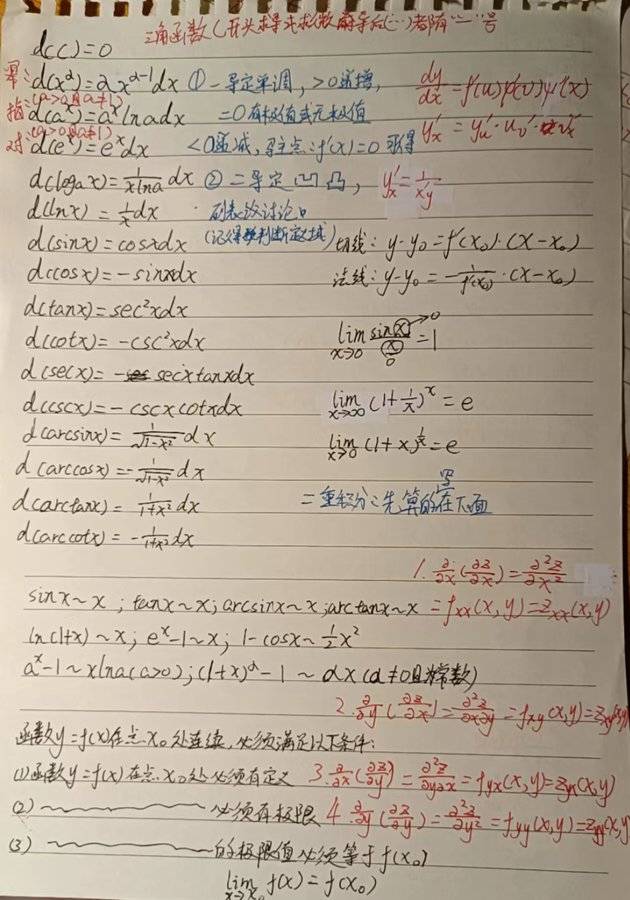 三角函数C开头求导求微商导后(…)都有"—"号
d(C)=0
幂: d(x^α)=αx^(α-1)dx ①一导定单调,>0递增, dy/dx=f'(u)φ'(v)ψ'(x)
(a>0且a≠1)
指 d(a^x)=a^x lnadx =0有极值或无极值
(a>0且a≠1)
对 d(e^x)=e^x dx <0递减,驻点:f'(x)=0取得 y'x=y'u·u'v·v'x
d(logax)=1/(xlna) dx ②二导定凹凸, y'x=1/x'y
d(lnx)=1/x dx 列表法讨论。
d(sinx)=cosxdx (记得判断定义域) 切线: y-y0=f'(x0)·(x-x0)
d(cosx)=-sinxdx 法线: y-y0=-1/f'(x0)·(x-x0)
d(tanx)=sec²xdx
d(cotx)=-csc²xdx lim x→0 sinx/x=1
d(secx)=secxtanxdx
d(cscx)=-cscxcotxdx lim x→∞ (1+1/x)^x=e
d(arcsinx)=1/√(1-x²) dx lim x→0 (1+x)^(1/x)=e
d(arccosx)=-1/√(1-x²) dx
d(arctanx)=1/(1+x²) dx 二重积分:先算的写在下面
d(arccotx)=-1/(1+x²) dx
1. ∂/∂x(∂z/∂x)=∂²z/∂x²
sinx~x;tanx~x;arcsinx~x;arctanx~x =fxx(x,y)=zxx(x,y)
ln(1+x)~x; e^x-1~x; 1-cosx~1/2x²
a^x-1~xlna(a>0);(1+x)^α-1~αx(α≠0且为常数)
2. ∂/∂y(∂z/∂x)=∂²z/∂x∂y=fxy(x,y)=zxy(x,y)
函数y=f(x)在点x0处连续,必须满足以下条件:
(1)函数y=f(x)在点x0处必须有定义 3. ∂/∂x(∂z/∂y)=∂²z/∂y∂x=fyx(x,y)=zyx(x,y)
(2)~~~~必须有极限 4. ∂/∂y(∂z/∂y)=∂²z/∂y²=fyy(x,y)=zyy(x,y)
(3)~~~~的极限值必须等于f(x0)
lim x→x0 f(x)=f(x0)